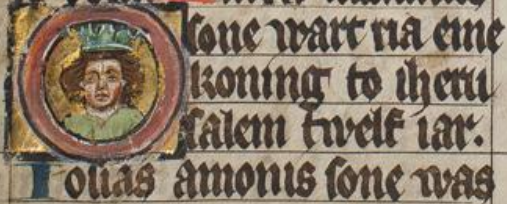 sone wart na eme
koning to iheru
salem twelf iar.
Iosias amonis sone was